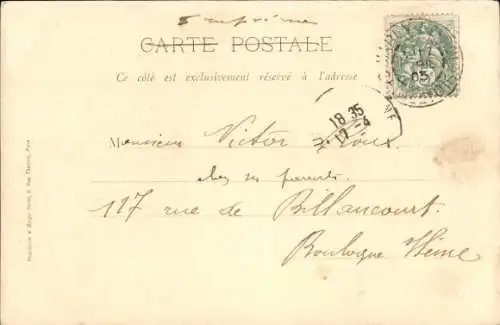 Imprimé
CARTE POSTALE
Ce côté est exclusivement réservé à l'adresse
18 35
17-4
03
Monsieur Victor
chez ses parents
117 rue de Billancourt.
Boulogne Seine